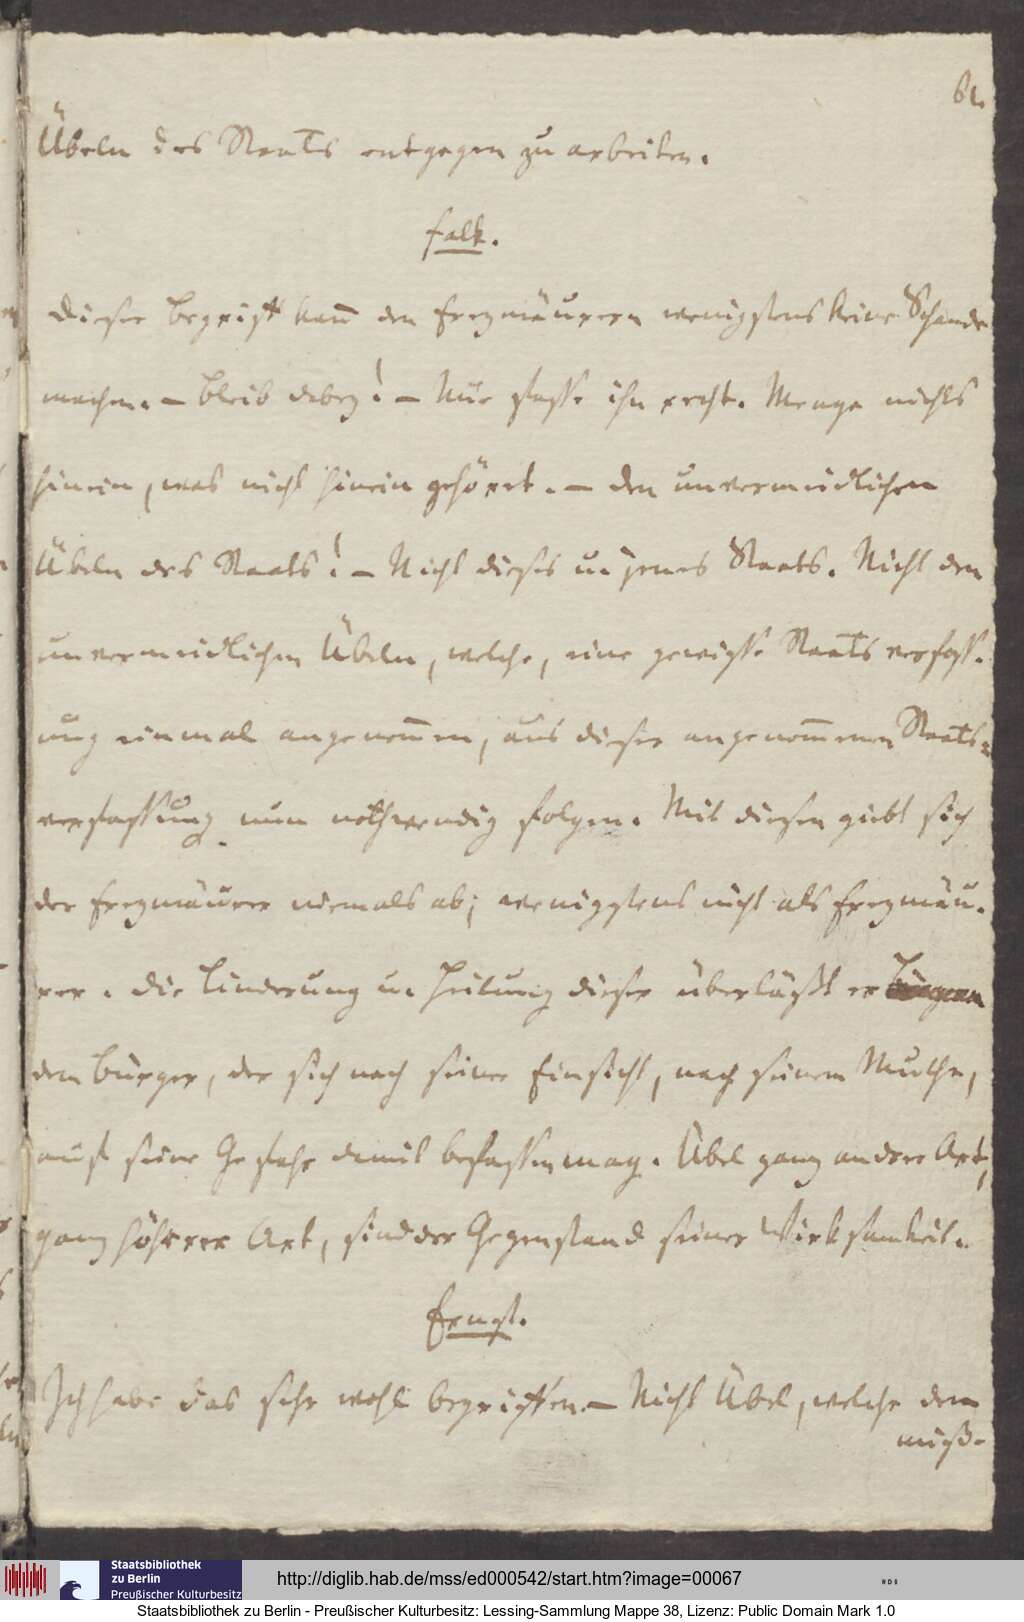 61.
Übeln des Staats entgegen zu arbeiten.
Falk.
Dieser Begriff kan̄ den Freymäurern wenigstens keine Schande
machen. – Bleib dabey! – Nur fasse ihn recht. Menge nichts
hinein, was nicht hinein gehöret. – Den unvermeidlichen
Übeln des Staats! – Nicht dieses u jenes Staats. Nicht den
unvermeidlichen Übeln, welche, eine gewisse Staats verfass-
ung einmal angenom̄en, aus dieser angenom̄enen Staats-
verfassung nun nothwendig folgen. Mit diesen giebt sich
der Freymäurer niemals ab; wenigstens nicht als Freymäu-
rer. Die Linderung u. Heilung dieser überläßt er
dem Bürger, der sich nach seiner Einsicht, nach seinem Muthe,
auf seine Gefahr damit befassen mag. Übel ganz andrer Art,
ganz höherer Art, sind der Gegenstand seiner Wirksamkeit.
Ernst.
Ich habe das sehr wohl begriffen. – Nicht Übel, welche den
miß-
Staatsbibliothek
zu Berlin
Preußischer Kulturbesitz
http://diglib.hab.de/mss/ed000542/start.htm?image=00067
Staatsbibliothek zu Berlin - Preußischer Kulturbesitz: Lessing-Sammlung Mappe 38, Lizenz: Public Domain Mark 1.0